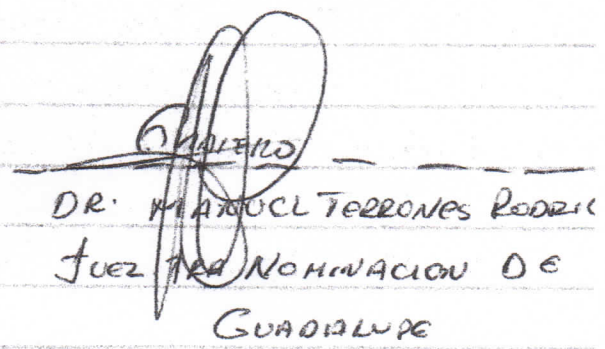 DR. MANUEL TERRONES RODRIG
JUEZ 1RA NOMINACION DE
GUADALUPE